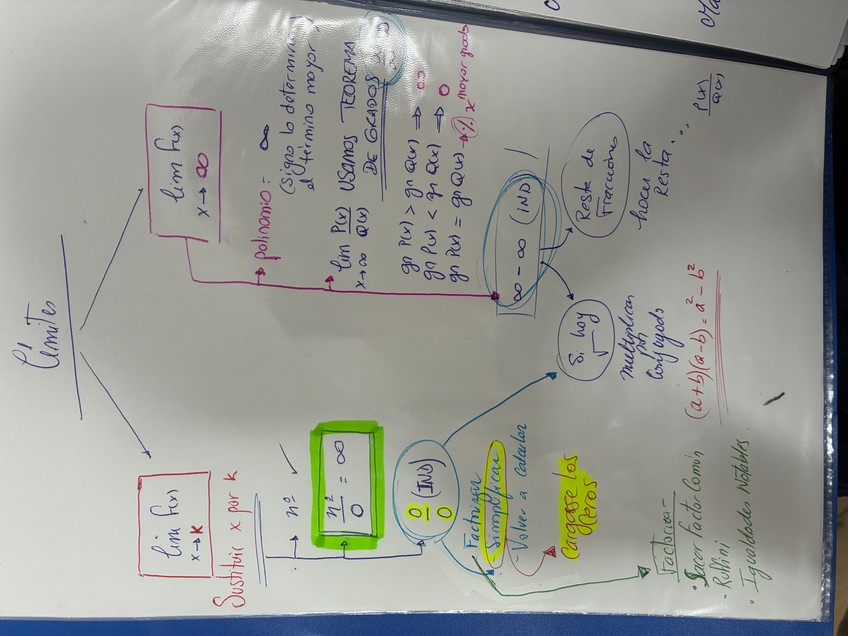 Límites
lim f(x)
x→k
Sustituir x por k
nº ✓
nº/0 = ∞
0/0 (IND)
- Factorizar
- Simplificar
- Volver a calcular
Cargarse los
ceros
Factorizar -
· Sacar Factor Común
- Ruffini
· Igualdades Notables
lim f(x)
x→∞
polinomio = ∞
(Signo lo determina
el término mayor)
lim P(x)/Q(x) USAMOS TEOREMA
x→∞
DE GRADOS ∞/∞ IND
gr P(x) > gr Q(x) → ∞
gr P(x) < gr Q(x) → 0
gr P(x) = gr Q(x) → x mayor grado
∞ - ∞ (IND)
Si hay
√
multiplicar
por
conjugado
(a+b)(a-b) = a² - b²
Resta de
Fracciones
hacer la
Resta... P(x)/Q(x)